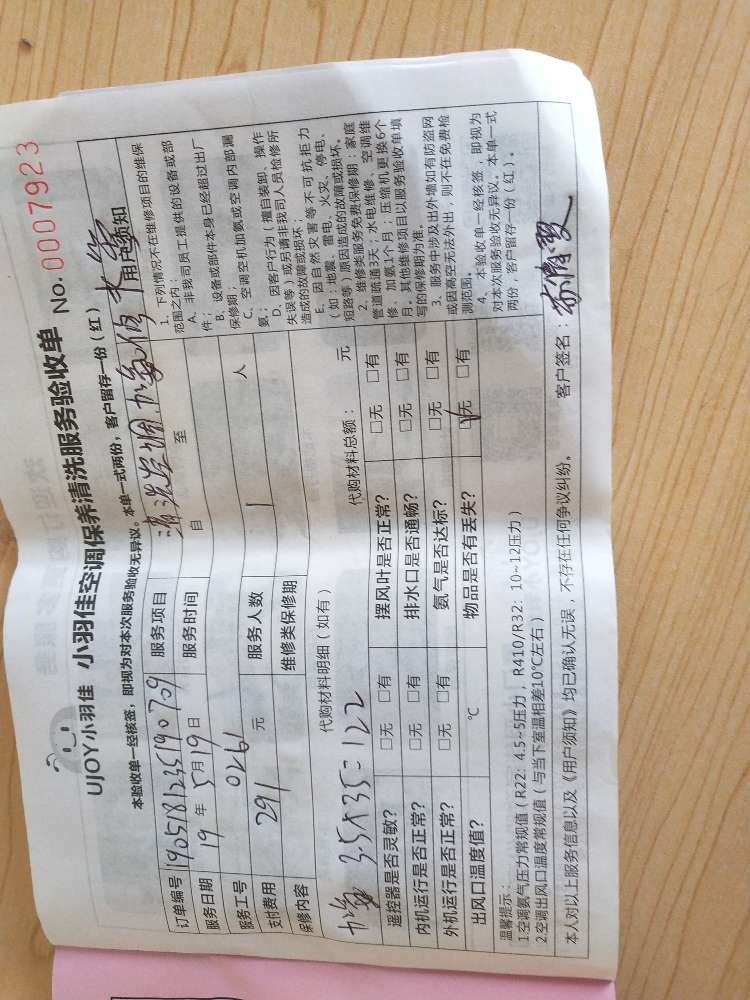 UJOY小羽佳 小羽佳空调保养清洗服务验收单 No. 0007923
本验收单一经核签，即视为对本次服务验收无异议。本单一式两份，客户留存一份（红）
订单编号 1905181235190709 服务项目 清洗空调.加氨
服务日期 19 年 5 月 19 日 服务时间 自 至
服务工号 0261
支付费用 291 元 服务人数 1 人
保修内容 维修类保修期
代购材料明细（如有） 代购材料总额： 元
加氨 3.5X35=122
遥控器是否灵敏？ □无 □有 摆风叶是否正常？ □无 □有
内机运行是否正常？ □无 □有 排水口是否通畅？ □无 □有
外机运行是否正常？ □无 □有 氨气是否达标？ □无 □有
出风口温度值？ ℃ 物品是否有丢失？ ☑无 □有
用户须知
1、下列情况不在维修项目的维保
范围之内：
A、非我司员工提供的设备或部
件；
B、设备或部件本身已经超过出厂
保修期；
C、空调空机加氨或空调内部漏
氨；
D、因客户行为（擅自装卸、操作
失误等）或另请非我司人员检修所
造成的故障或损坏；
E、因自然灾害等不可抗拒力
（如:地震、雷电、火灾、停电、
短路等）原因造成的故障或损坏。
2、维修类服务免费保修期：家庭
管道疏通3天；水电维修、空调维
修、加氨1个月；压缩机更换6个
月。其他维修项目以服务验收单填
写的保修期为准。
3、服务中涉及出外墙如有防盗网
或因高空无法外出，则不在免费检
测范围。
4、本验收单一经核签，即视为
对本次服务验收无异议。本单一式
两份，客户留存一份（红）。
温馨提示：
1.空调氨气压力常规值（R22: 4.5~5压力，R410/R32: 10~12压力）
2.空调出风口温度常规值（与当下室温相差10℃左右）
本人对以上服务信息以及《用户须知》均已确认无误，不存在任何争议纠纷。 客户签名：